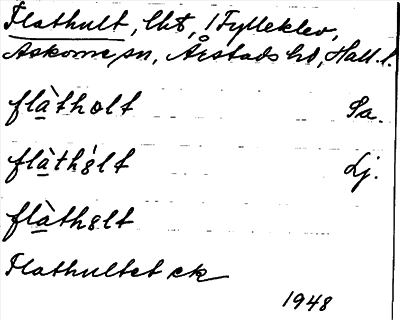 Flathult, lht, i Fylleklev,
Askome sn, Årstads hd, Hall. l.
flàtholt Sa.
flàthȯlt Lj.
flàthȯlt
Flathultet ek
1948